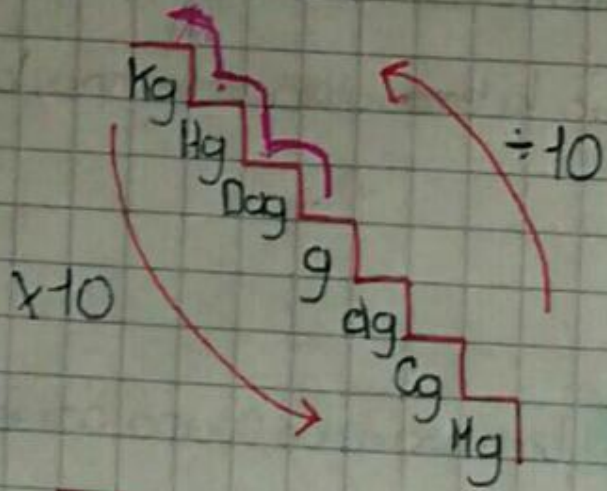 Kg
Hg
Dag
g
dg
Cg
Mg
÷10
x10